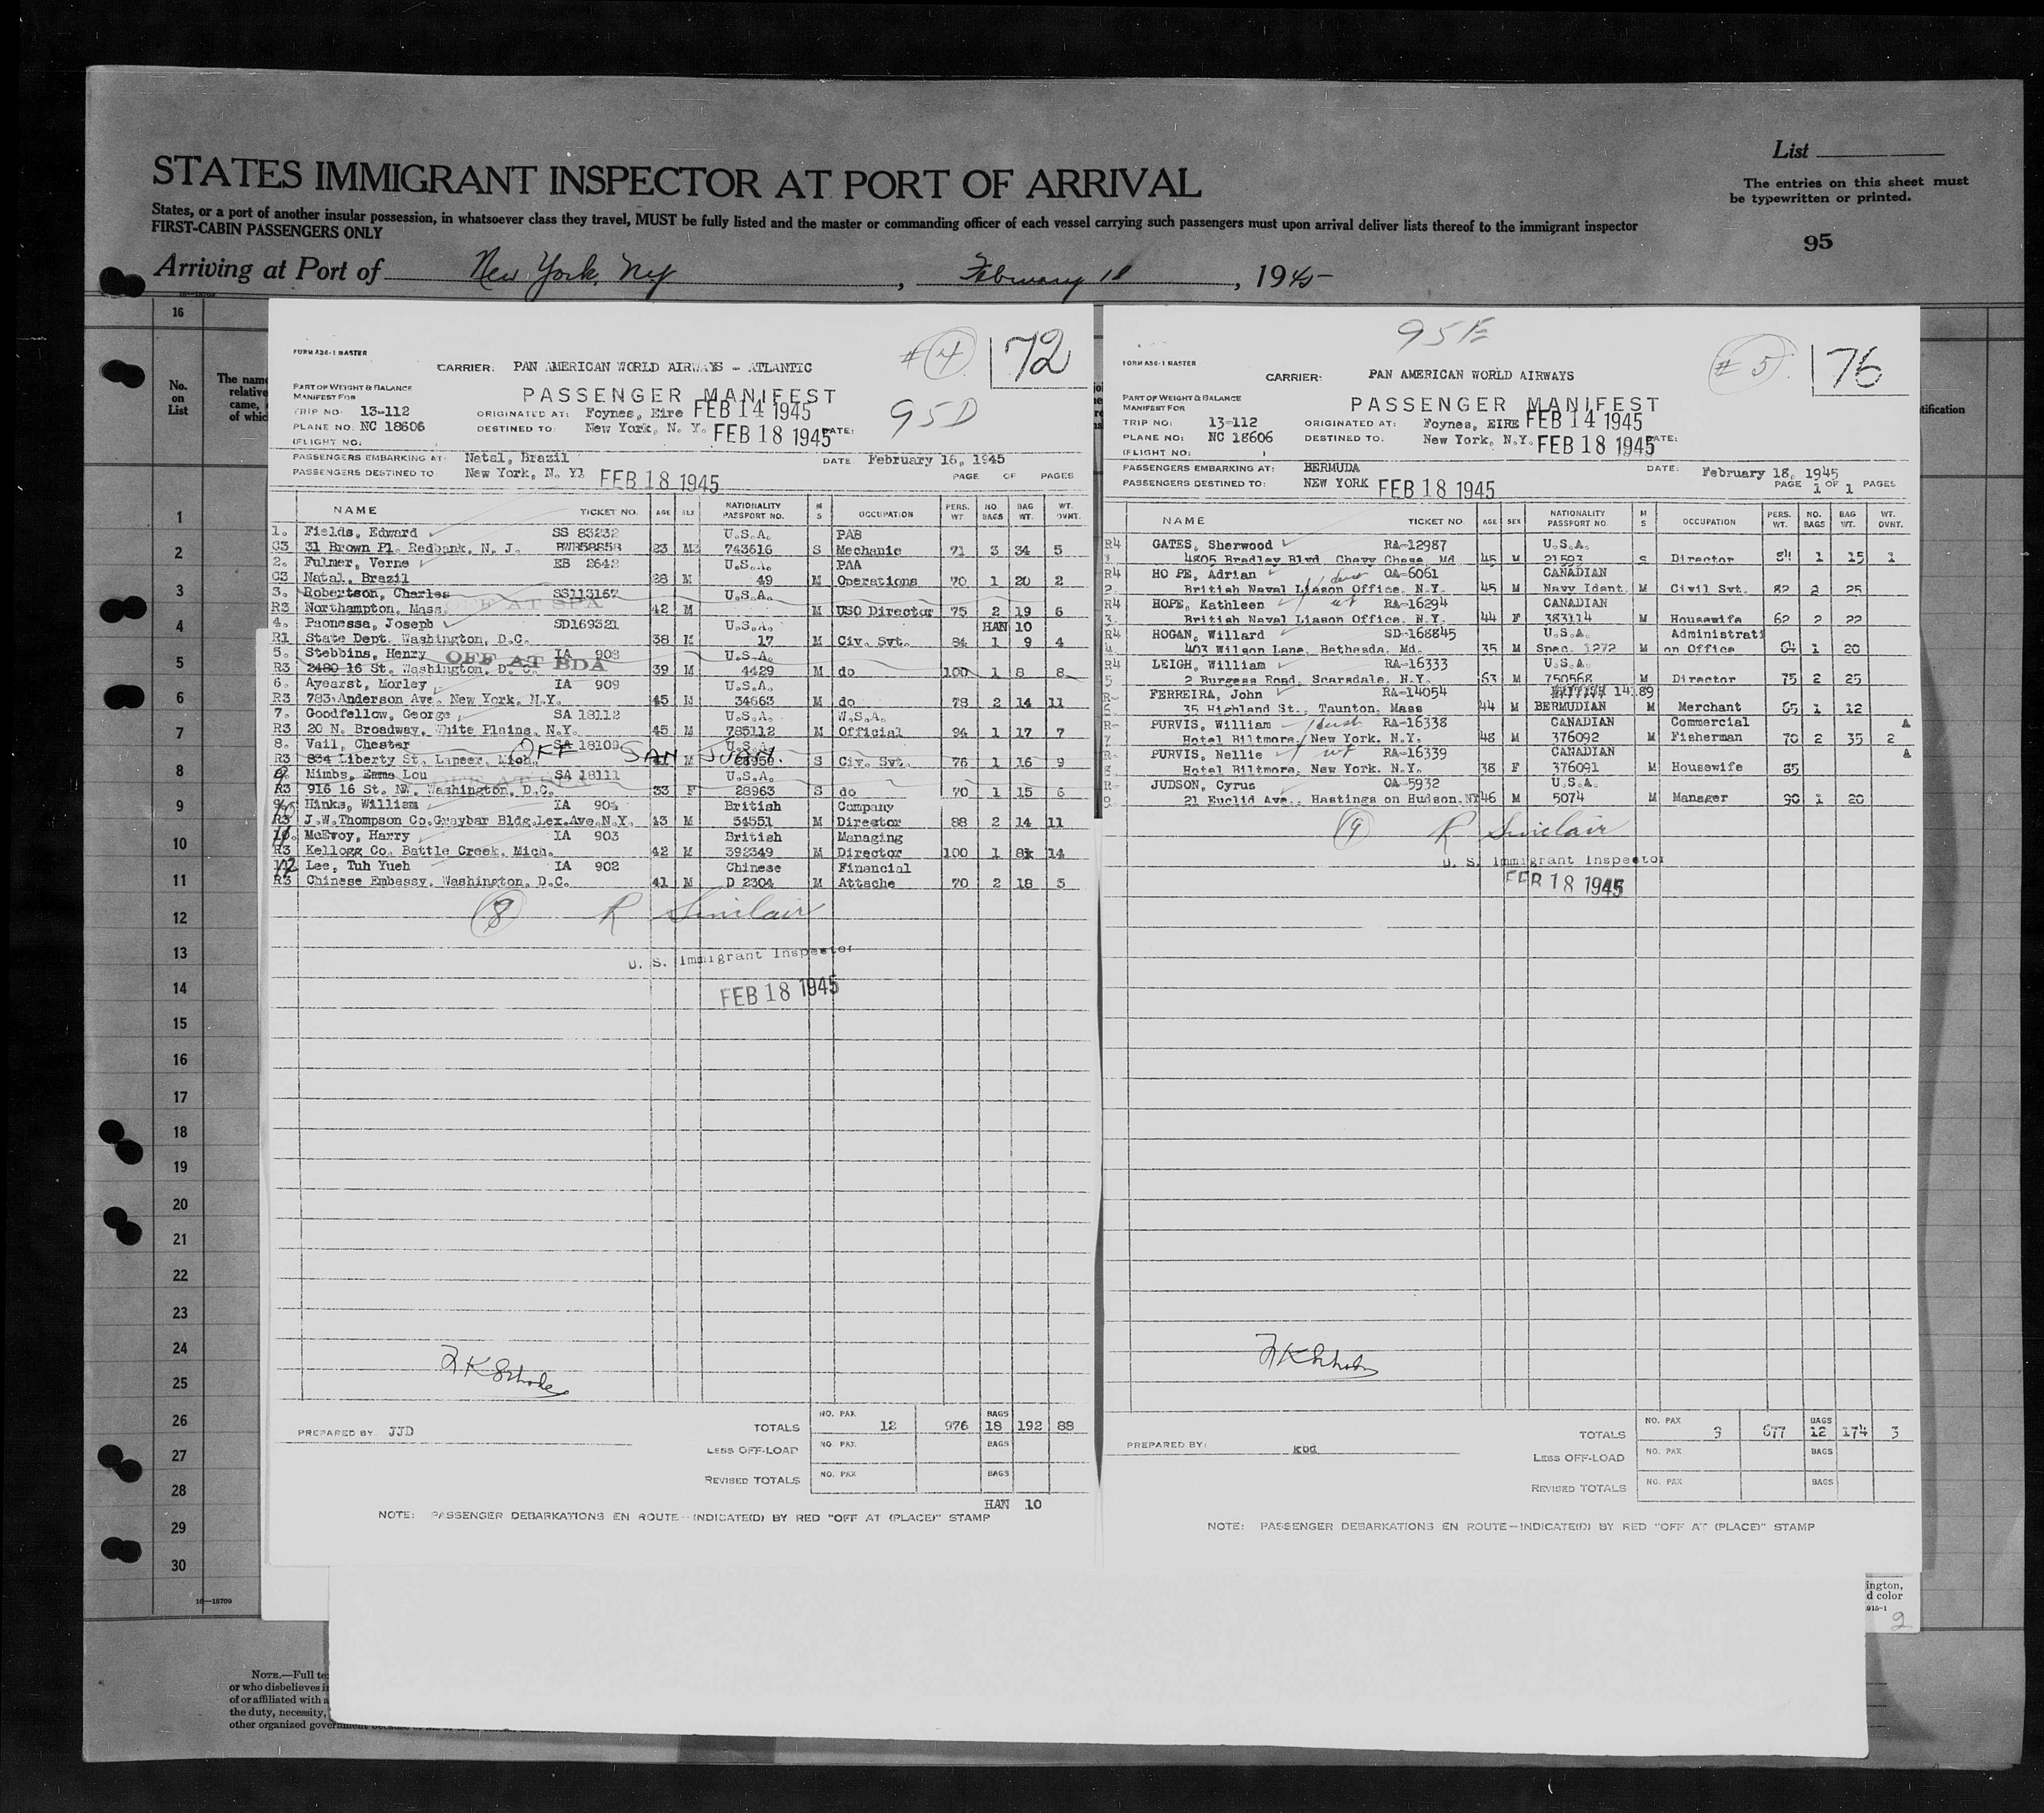 List
The entries on this sheet must
be typewritten or printed.
STATES IMMIGRANT INSPECTOR AT PORT OF ARRIVAL
States, or a port of another insular possession, in whatsoever class they travel, MUST be fully listed and the master or commanding officer of each vessel carrying such passengers must upon arrival deliver lists thereof to the immigrant inspector
FIRST-CABIN PASSENGERS ONLY
95
Arriving at Port of New York, NY, February 18, 1945
16
No.
on
List
The name
relative
came,
of whic
1
2
3
4
5
6
7
8
9
10
11
12
13
14
15
16
17
18
19
20
21
22
23
24
25
26
27
28
29
30
16—18709
FORM A36-1 MASTER
#4 72
CARRIER: PAN AMERICAN WORLD AIRWAYS - ATLANTIC
PART OF WEIGHT & BALANCE
MANIFEST FOR
PASSENGER MANIFEST
95D
TRIP NO: 13-112 ORIGINATED AT: Foynes, Eire FEB 14 1945
PLANE NO: NC 18606 DESTINED TO: New York, N. Y. FEB 18 1945 DATE:
(FLIGHT NO:
PASSENGERS EMBARKING AT: Natal, Brazil DATE February 16, 1945
PASSENGERS DESTINED TO New York, N. Y. FEB 18 1945 PAGE OF PAGES
NAME TICKET NO. AGE SEX NATIONALITY PASSPORT NO. M S OCCUPATION PERS. WT. NO. BAGS BAG WT. WT. OVNT.
1. Fields, Edward SS 83232 U.S.A. PAB
C3 31 Brown Pl. Redbank, N. J. 23 M 743616 S Mechanic 71 3 34 5
2. Fulmer, Verne EB 2642 U.S.A. PAA
C3 Natal, Brazil 28 M 49 M Operations 70 1 20 2
3. Robertson, Charles SS113167 U.S.A.
R3 Northampton, Mass. OFF AT SPA 42 M M USO Director 75 2 19 6
4. Paonessa, Joseph SD169321 U.S.A. HAN 10
R1 State Dept. Washington, D.C. 38 M 17 M Civ. Svt. 84 1 9 4
5. Stebbins, Henry OFF AT BDA IA 908 U.S.A.
R3 2480 16 St. Washington, D. C. 39 M 4429 M do 100 1 8 8
6. Ayearst, Morley IA 909 U.S.A.
R3 783 Anderson Ave. New York, N.Y. 45 M 34663 M do 78 2 14 11
7. Goodfellow, George SA 18112 U.S.A. W.S.A.
R3 20 N. Broadway, White Plains, N.Y. 45 M 785112 M Official 94 1 17 7
8. Vail, Chester OFF SAN JUAN SA 18109 U.S.A.
R3 834 Liberty St. Lapeer, Mich. M S Civ. Svt. 76 1 16 9
9. Nimbs, Emma Lou OFF AT SPA SA 18111 U.S.A.
R3 916 16 St. NW. Washington, D.C. 33 F 28963 S do 70 1 15 6
Hinks, William IA 904 British Company
R3 J.W.Thompson Co.Graybar Bldg.Lex.Ave.N.Y. 43 M 54551 M Director 88 2 14 11
11. McEvoy, Harry IA 903 British Managing
R3 Kellogg Co. Battle Creek, Mich. 42 M 392349 M Director 100 1 14
12 Lee, Tuh Yueh IA 902 Chinese Financial
R3 Chinese Embassy, Washington, D.C. 41 M D 2304 M Attache 70 2 18 5
8 R Sinclair
U. S. Immigrant Inspector
FEB 18 1945
TOTALS NO. PAX. 12 976 BAGS 18 192 88
PREPARED BY: JJD
LESS OFF-LOAD NO. PAX. BAGS
REVISED TOTALS NO. PAX BAGS
HAN 10
NOTE: PASSENGER DEBARKATIONS EN ROUTE—INDICATE(D) BY RED "OFF AT (PLACE)" STAMP
95E
FORM A36-1 MASTER
#5 76
CARRIER: PAN AMERICAN WORLD AIRWAYS
PART OF WEIGHT & BALANCE
MANIFEST FOR
PASSENGER MANIFEST
TRIP NO: 13-112 ORIGINATED AT: Foynes, EIRE FEB 14 1945
PLANE NO: NC 18606 DESTINED TO: New York, N.Y. FEB 18 1945 DATE:
(FLIGHT NO: )
PASSENGERS EMBARKING AT: BERMUDA DATE: February 18, 1945
PASSENGERS DESTINED TO: NEW YORK FEB 18 1945 PAGE 1 OF 1 PAGES
NAME TICKET NO. AGE SEX NATIONALITY PASSPORT NO. M S OCCUPATION PERS. WT. NO. BAGS BAG WT. WT. OVNT.
R4 GATES, Sherwood RA-12987 U.S.A.
1. 4805 Bradley Blvd. Chevy Chase, Md 45 M 21593 S Director 84 1 15 1
R4 HOPE, Adrian OA-6061 CANADIAN
2. British Naval Liason Office, N.Y. 45 M Navy Ident. M Civil Svt. 82 2 25
R4 HOPE, Kathleen RA-16294 CANADIAN
3. British Naval Liason Office, N.Y. 44 F 383114 M Housewife 62 2 22
R4 HOGAN, Willard SD-168845 U.S.A. Administrati
4. 403 Wilson Lane, Bethesda, Md. 35 M Spec. 1272 M on Office 64 1 20
R4 LEIGH, William RA-16333 U.S.A.
5 2 Burgess Road, Scarsdale, N.Y. 63 M 750568 M Director 75 2 25
R- FERREIRA, John RA-14054 14189
6. 35 Highland St., Taunton, Mass 44 M BERMUDIAN M Merchant 65 1 12
R- PURVIS, William RA-16338 CANADIAN Commercial A
7 Hotel Biltmore, New York, N.Y. 48 M 376092 M Fisherman 70 2 35 2
R- PURVIS, Nellie RA-16339 CANADIAN A
8. Hotel Biltmore, New York, N.Y. 38 F 376091 M Housewife 85
R- JUDSON, Cyrus OA-5932 U.S.A.
9. 21 Euclid Ave., Hastings on Hudson, NY 46 M 5074 M Manager 90 1 20
9 R Sinclair
U. S. Immigrant Inspector
FEB 18 1945
TOTALS NO. PAX 9 677 BAGS 12 174 3
PREPARED BY: kbd
LESS OFF-LOAD NO. PAX BAGS
REVISED TOTALS NO. PAX BAGS
NOTE: PASSENGER DEBARKATIONS EN ROUTE—INDICATE(D) BY RED "OFF AT (PLACE)" STAMP
tification
ington,
d color
915-1
2
NOTE.—Full te
or who disbelieves i
of or affiliated with a
the duty, necessity,
other organized government because